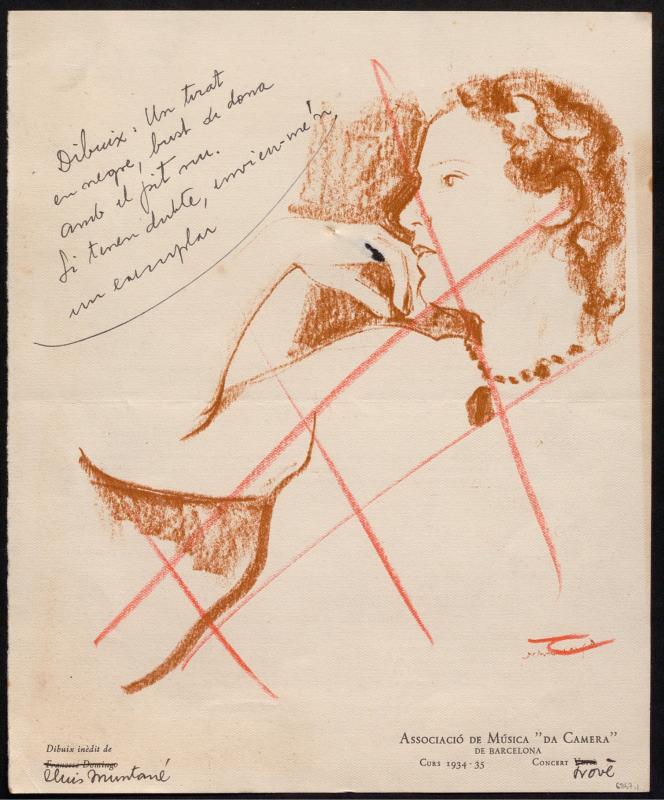 Dibuix: Un tirat
en negre, bust de dona
amb el pit nu.
Si tenen dubte, enviem-me'n
un exemplar
Dibuix inèdit de
Francesc Domingo
Lluis Muntané
ASSOCIACIÓ DE MÚSICA "DA CAMERA"
DE BARCELONA
CURS 1934-35 CONCERT
Novè